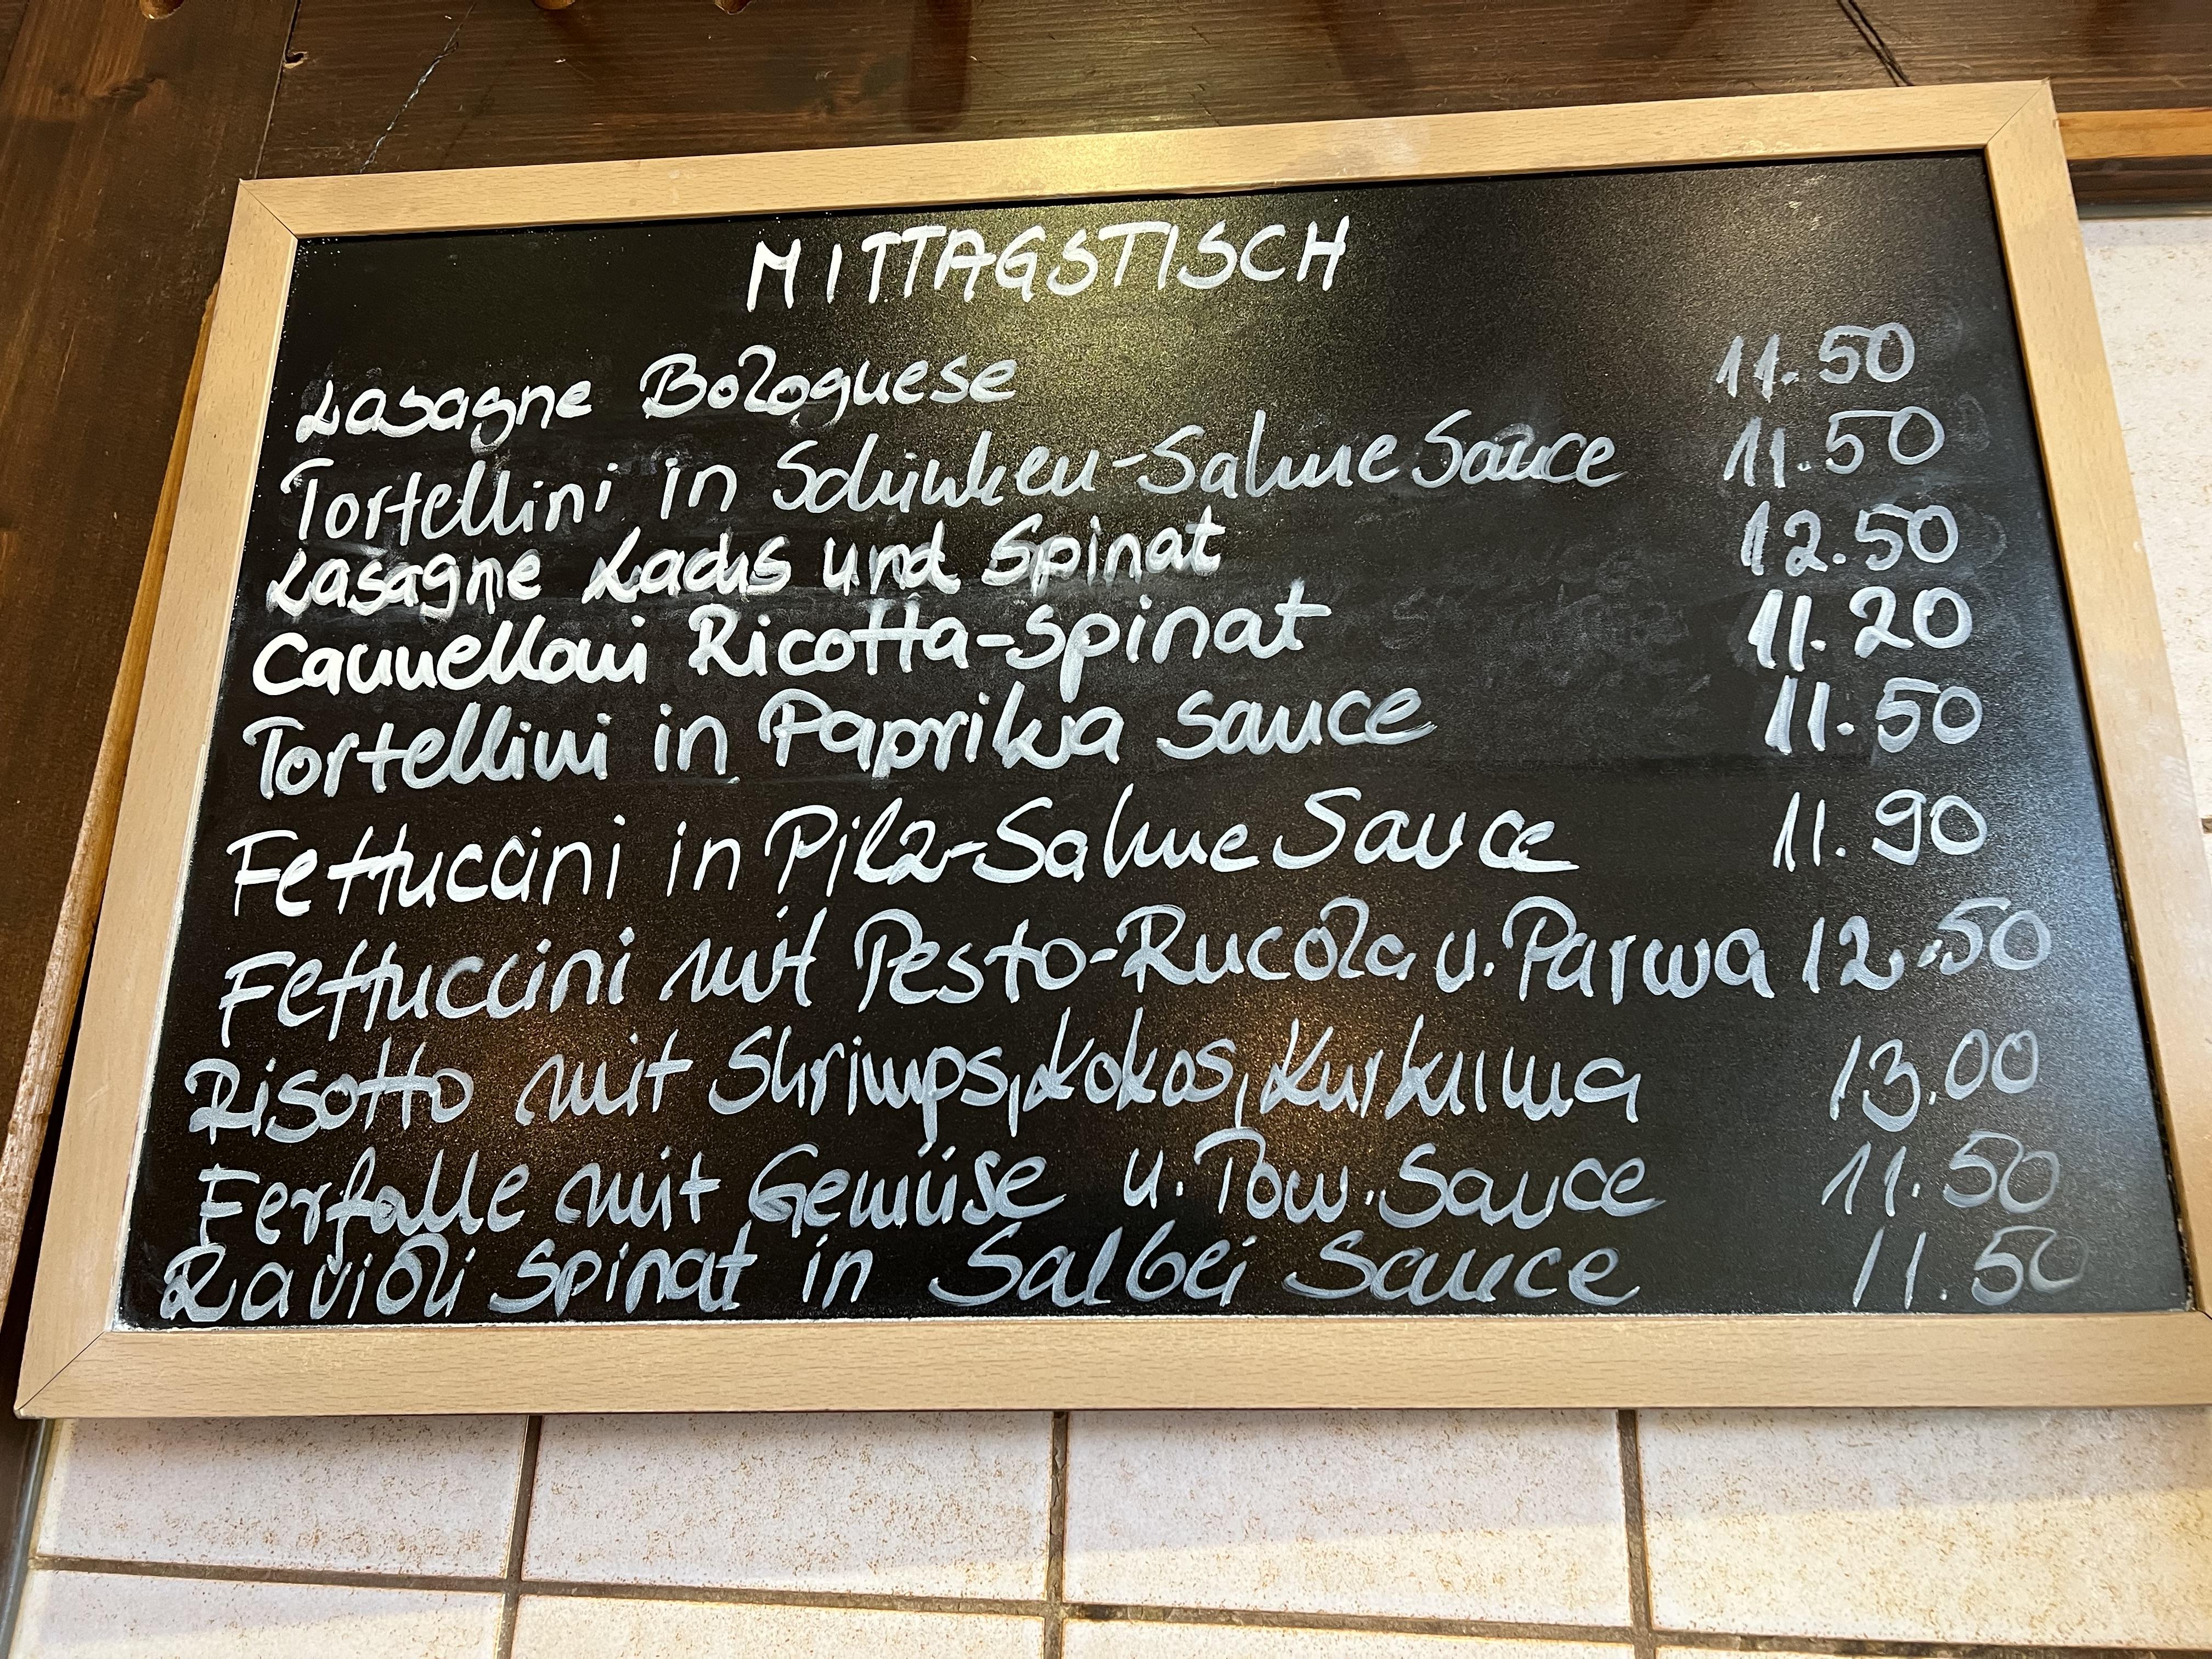 MITTAGSTISCH
Lasagne Bolognese 11.50
Tortellini in Schinken-Sahne Sauce 11.50
Lasagne Lachs und Spinat 12.50
Cannelloni Ricotta-Spinat 11.20
Tortellini in Paprika Sauce 11.50
Fettuccini in Pilz-Sahne Sauce 11.90
Fettuccini mit Pesto-Rucola u. Parma 12.50
Risotto mit Shrimps, Kokos, Kurkuma 13.00
Ferfalle mit Gemüse u. Tom. Sauce 11.50
Ravioli Spinat in Salbei Sauce 11.50